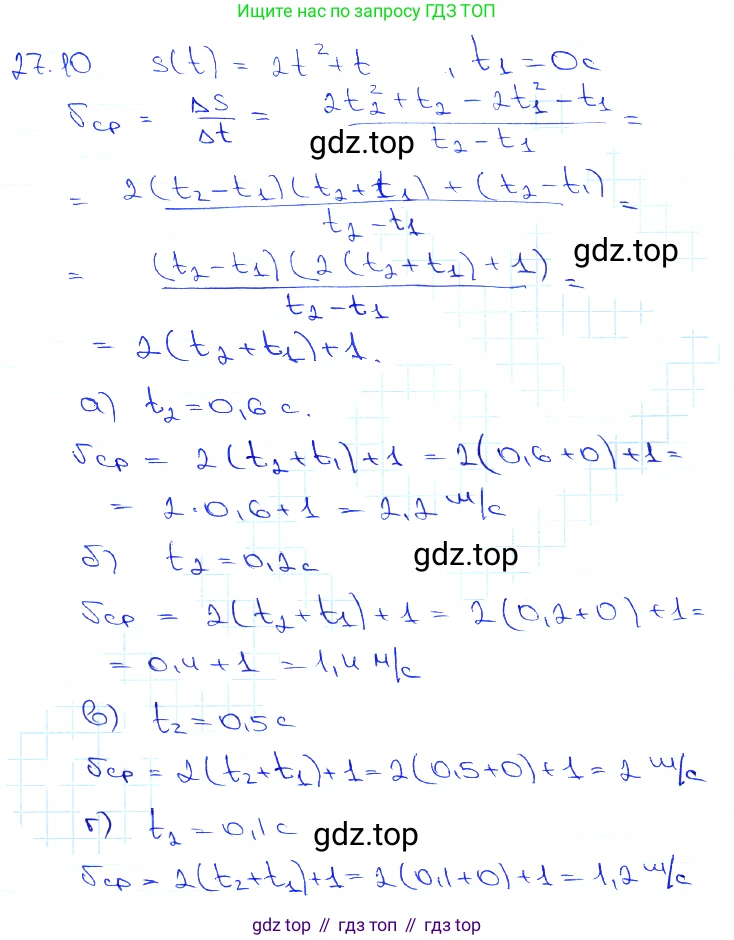 Ищите нас по запросу ГДЗ ТОП
27.10 s(t) = 2t² + t , t₁ = 0с
υср = Δs/Δt = (2t₂² + t₂ - 2t₁² - t₁)/(t₂ - t₁) =
gdz.top
= (2(t₂ - t₁)(t₂ + t₁) + (t₂ - t₁))/(t₂ - t₁) =
gdz.top
= ((t₂ - t₁)(2(t₂ + t₁) + 1))/(t₂ - t₁) =
= 2(t₂ + t₁) + 1.
а) t₂ = 0,6 с.
υср = 2(t₂ + t₁) + 1 = 2(0,6 + 0) + 1 =
= 2·0,6 + 1 = 2,2 м/с
б) t₂ = 0,2с
gdz.top
υср = 2(t₂ + t₁) + 1 = 2(0,2 + 0) + 1 =
= 0,4 + 1 = 1,4 м/с
в) t₂ = 0,5 с
υср = 2(t₂ + t₁) + 1 = 2(0,5 + 0) + 1 = 2 м/с
г) t₂ = 0,1 с
gdz.top
υср = 2(t₂ + t₁) + 1 = 2(0,1 + 0) + 1 = 1,2 м/с
gdz top // гдз топ // gdz top // гдз топ